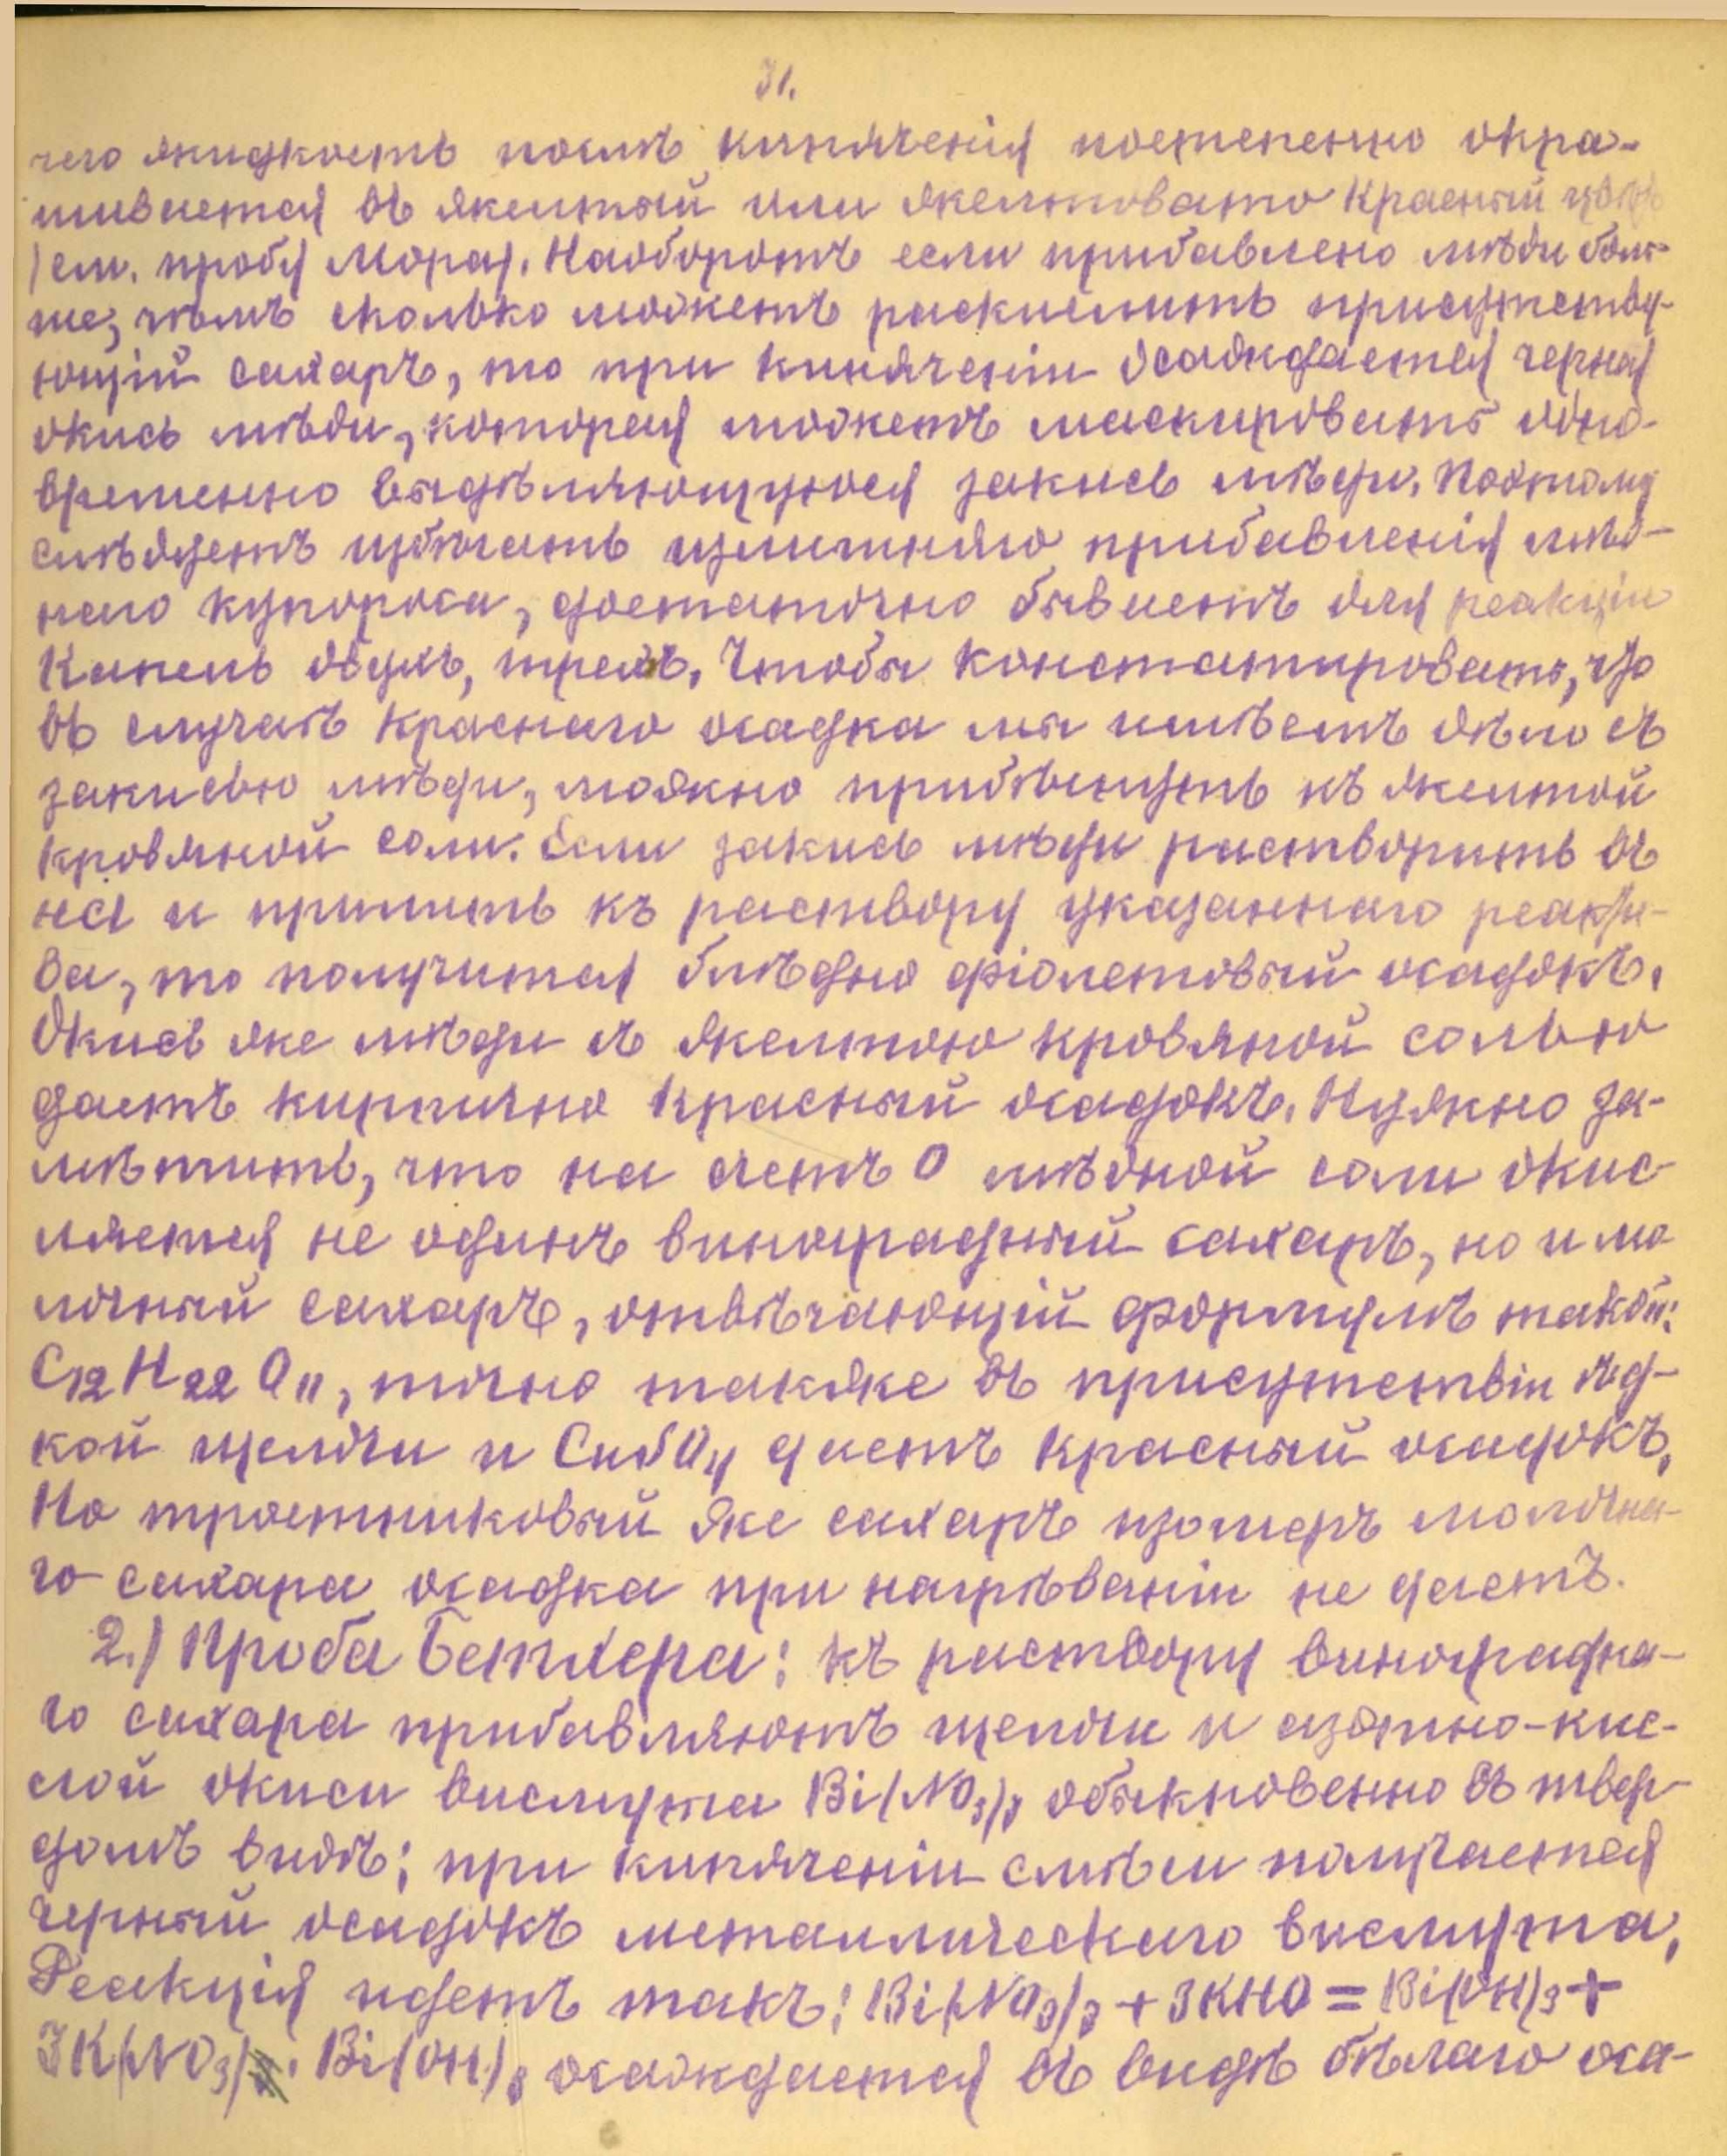 31.
чего жидкость послѣ кипяченія постепенно окра-
шивается въ желтый или желтовато красный цвѣтъ
(см. пробу Мора). Наоборотъ если прибавлено мѣди боль-
ше, чѣмъ сколько можетъ раскислить присутству-
ющій сахаръ, то при кипяченіи осаждается черная
окись мѣди, которая можетъ маскировать одно-
временно выдѣляющуюся закись мѣди. Поэтому
слѣдуетъ избѣгать излишняго прибавленія мѣд-
наго купороса, достаточно бываетъ для реакціи
капель двухъ, трехъ. Чтобы констатировать, что
въ случаѣ краснаго осадка мы имѣемъ дѣло съ
закисью мѣди, можно прибѣгнуть къ желтой
кровяной соли. Если закись мѣди растворить въ
HCl и прилить къ раствору указаннаго реакти-
ва, то получится блѣдно фіолетовый осадокъ.
Окись же мѣди съ желтою кровяной солью
даетъ кирпично красный осадокъ. Нужно за-
мѣтить, что на счетъ O мѣдной соли окис-
ляется не одинъ виноградный сахаръ, но и мо
лочный сахаръ, отвѣчающій формулѣ такой:
C12 H22 O11, точно также въ присутствіи ѣд-
кой щелочи и CuSO4 даетъ красный осадокъ.
Но тростниковый же сахаръ изомеръ молочна-
го сахара осадка при нагрѣваніи не даетъ.
2.) Проба Бетхера: къ раствору винограднa-
го сахара прибавляютъ щелочи и азотно-кис-
лой окиси висмута Bi(NO3)3 обыкновенно въ твер-
домъ видѣ; при кипяченіи смѣси получается
черный осадокъ металлическаго висмута,
Реакція идетъ такъ: Bi(NO3)3 + 3KHO = Bi(OH)3 +
3K(NO3). Bi(OH)3 осаждается въ видѣ бѣлаго оса-